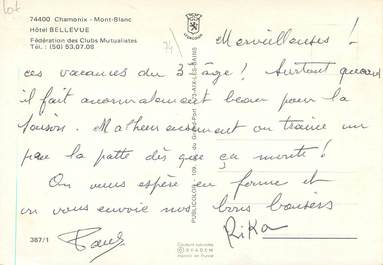 Lot
74400 Chamonix - Mont-Blanc
Hôtel BELLEVUE
Fédération des Clubs Mutualistes
Tél. : (50) 53.07.08
74
Merveilleuses !
ces vacances du 3e âge ! Surtout quand
il fait anormalement beau pour la
saison. Malheureusement on traine un
peu la patte dès que ça monte !
On vous espère en forme et
on vous envoie nos bons baisers
387/1
Rika
PUBLICOLOR - 109,
du Grand-Port
73-AIX-LES-BAINS
Couleurs naturelles
SPADEM
Imprimé en France